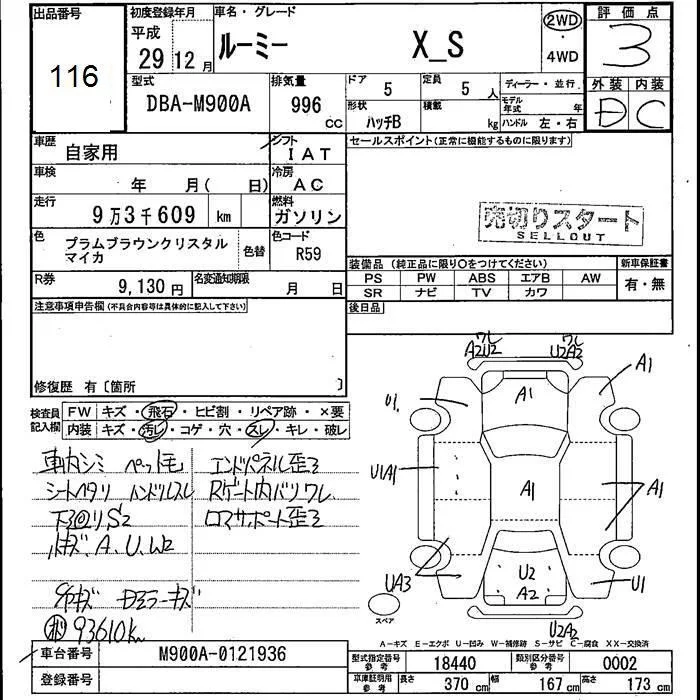 出品番号
116
初度登録年月
平成
29 12 月
車名・グレード
ルーミー X_S
2WD
・
4WD
評価点
3
型式
DBA-M900A
排気量
996
CC
ドア
5
定員
5 人
形状
ハッチB
積載
kg
ディーラー・並行
モデル年式 年
ハンドル 左・右
外装 内装
D C
車歴
自家用
シフト
IAT
車検
年 月( 日)
冷房
AC
走行
9万3千609 km
燃料
ガソリン
色
プラムブラウンクリスタル
マイカ
色替
色コード
R59
R券
9,130 円
名変通知期限
月 日
セールスポイント(正常に機能するものに限ります)
売切りスタート
SELLOUT
装備品(純正品に限り○をつけてください)
新車保証書
PS PW ABS エアB AW
有・無
SR ナビ TV カワ
後日品
注意事項申告欄(不具合内容等は具体的に記入して下さい)
修復歴 有〔箇所 〕
検査員
記入欄
FW キズ・飛石・ヒビ割・リペア跡・×要
内装 キズ・汚レ・コゲ・穴・スレ・キレ・破レ
車内シミ ペット毛
シートヘタリ ハンドルスレ
S2
A、U、W2
ドアミラーキズ
93610km
エンドパネル歪ミ
Rゲート内バリワレ
コアサポート歪ミ
ワレ
A2U2
ワレ
U2A2
A1
A1
U1
U1A1
A1
A1
UA3
U2
A2
U1
U2A2
スペア
A-キズ E-エクボ U-凹み W-補修跡 S-サビ C-腐食 XX-交換済
車台番号
M900A-0121936
登録番号
型式指定番号
参考
18440
類別区分番号
参考
0002
車庫証明用
参考
長さ
370 cm
幅
167 cm
高さ
173 cm